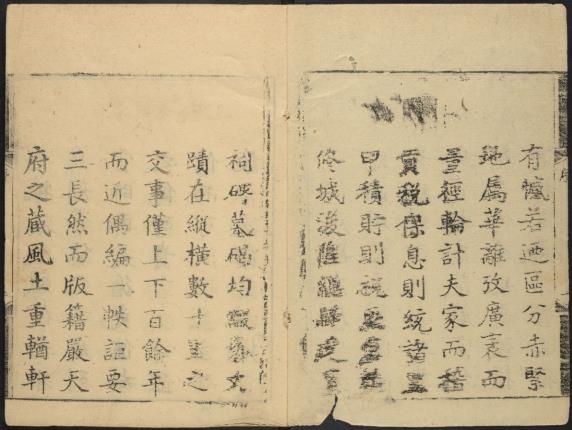 有觿若迺區分赤緊
地屬華離攷廣袤而
量徑輪計夫家而稽
貢稅保息則統諸
甲積貯則
修城浚隍
祠碑墓碣均
蹟在縱橫數十里之
交事僅上下百餘年
而近偶編一帙詎要
三長然而版籍嚴天
府之藏風土重輶軒